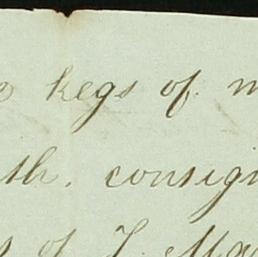 kegs of
consign
of J. Ma